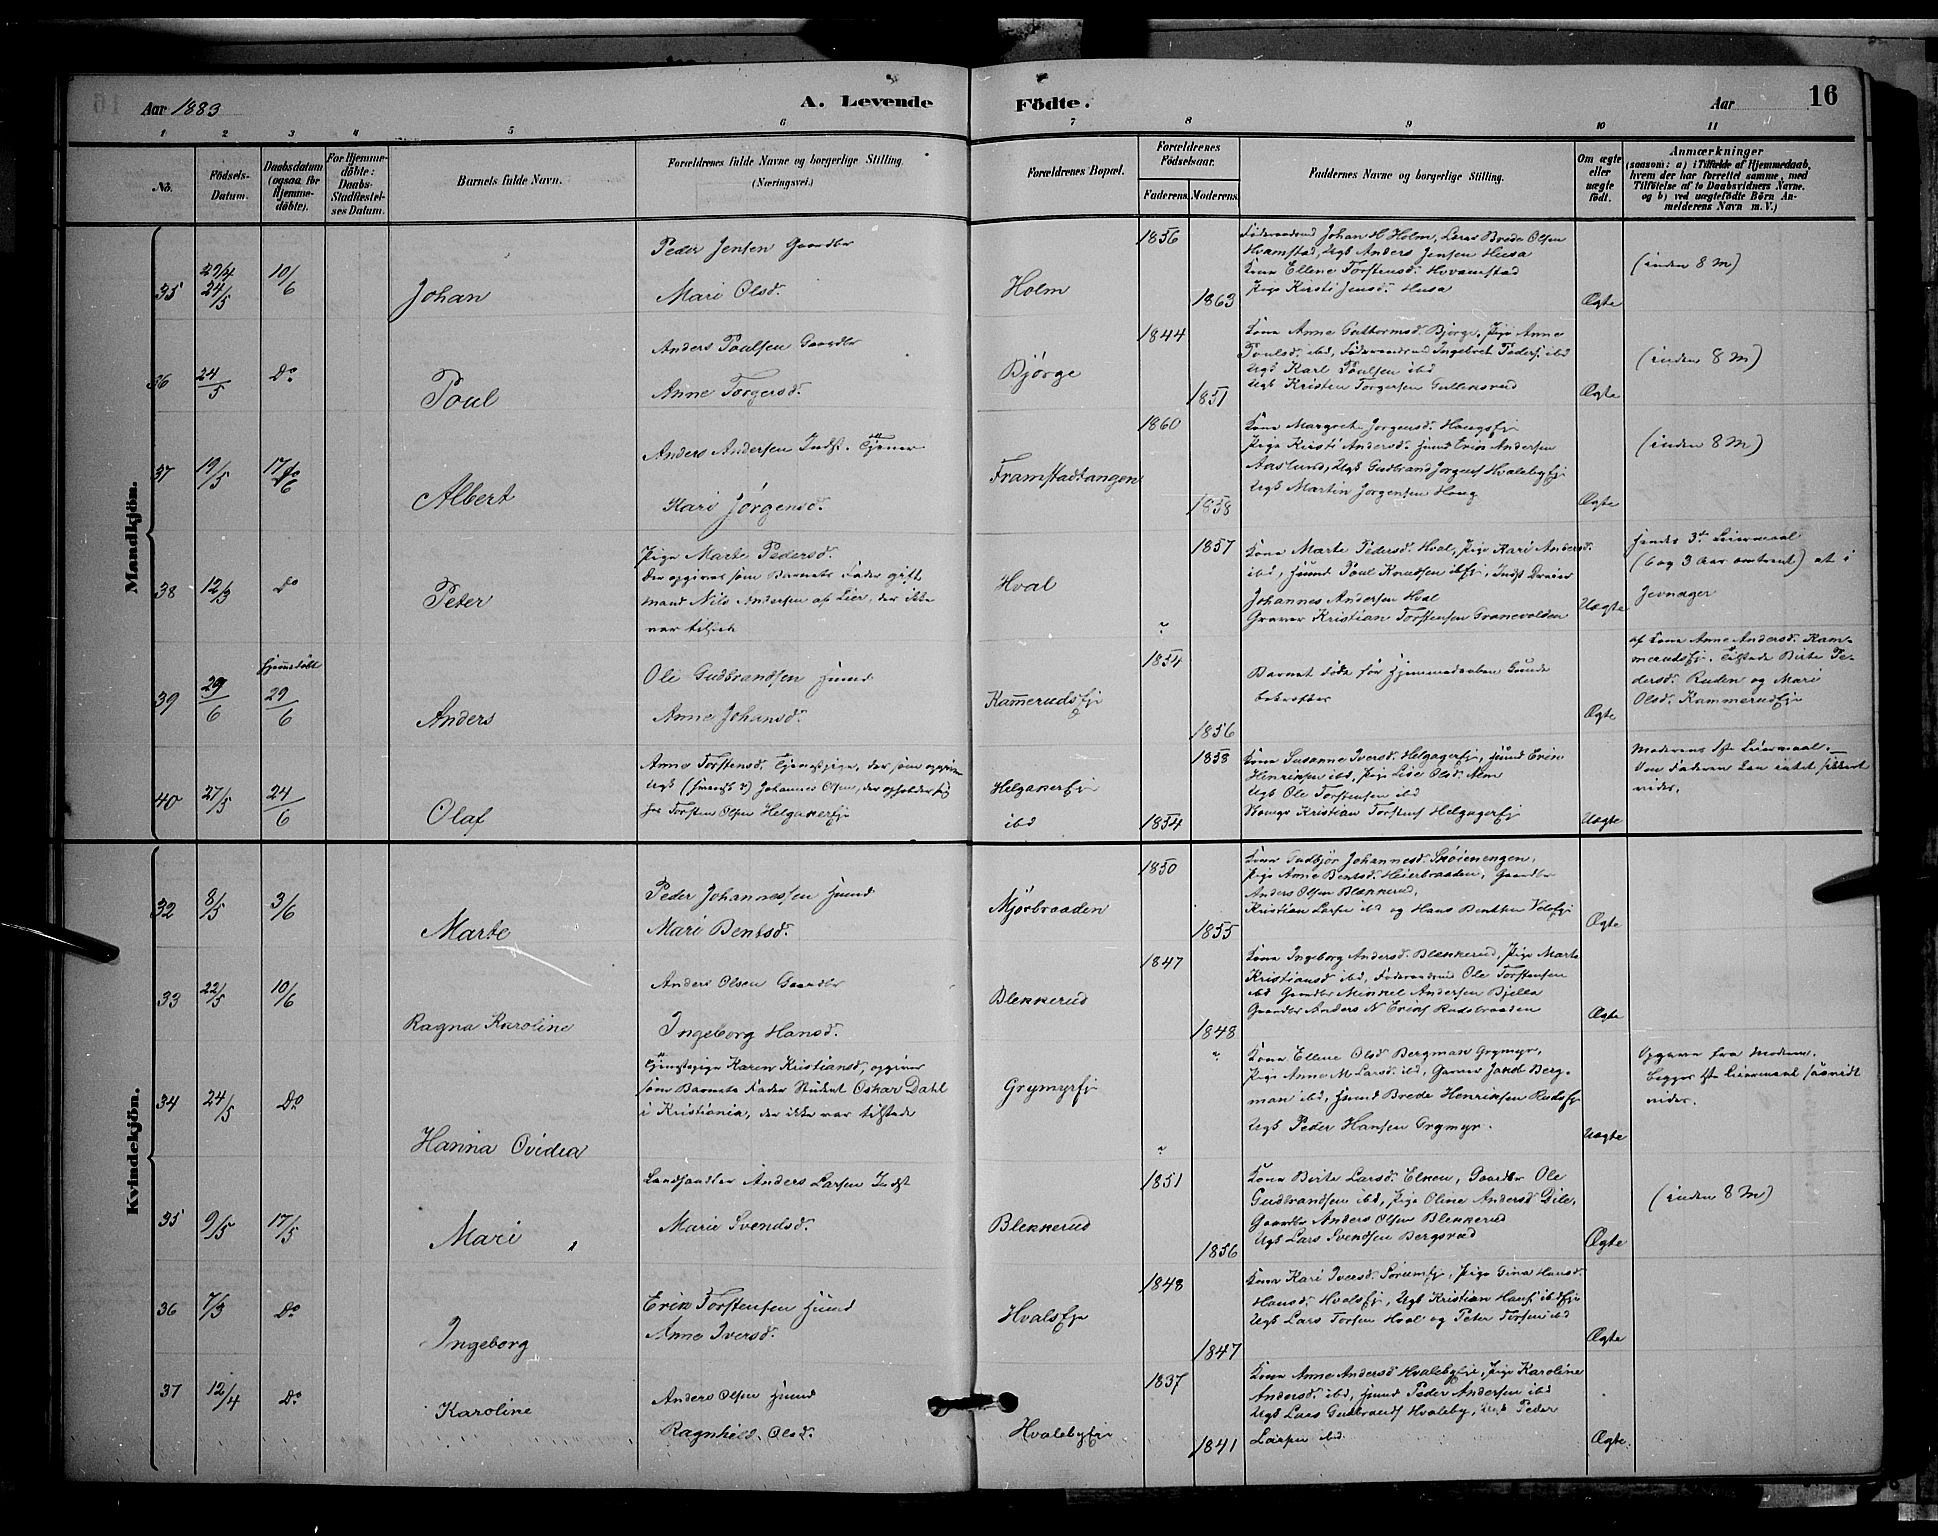 Aar 1883
A. Levende
Födte.
Aar
16
1 2 3 4 5 6 7 8 9 10 11
No.
Födsels-
Datum.
Daabsdatum
(ogsaa for
Hjemme-
döbte).
For Hjemme-
döbte:
Daabs-
Stadfæstel-
ses Datum.
Barnets fulde Navn.
Forældrenes fulde Navne og borgerlige Stilling.
(Næringsvei.)
Forældrenes Bopæl.
Forældrenes
Födselsaar.
Faderens.
Moderens.
Faddernes Navne og borgerlige Stilling.
Om ægte
eller
uægte
födt.
Anmærkninger
(saasom: a) i Tilfælde af Hjemmedaab,
hvem der har forrettet samme, med
Tilföielse af to Daabsvidners Navne.
og b) ved uægtefödte Börn An-
melderens Navn m. V.)
Mandkjön.
35
24/5
10/6
Johan
Peder Jensen Gaardbr
Mari Olsd.
Holm
1856
1863
Föderaadsmd Johan H Holm, Lars Brede Olsen
Hvamstad, Ugk Anders Jensen Husa
Kone Ellene Torstensd. Hvamstad
Pige Kirsti Jensd. Husa
Ægte
(inden 8 M)
36
24/5
Do
Poul
Anders Poulsen Gaardbr
Anne Torgersd.
Bjørge
1844
1851
Kone Anne Guttormsd. Bjørge, Pige Anne
Poulsd. ibd, Föderaadsmd Ingebret Peders. ibd
Ugk Karl Poulsen ibd
Ugk Kristen Torgersen Gullensrud
Ægte
(inden 8 M)
37
19/5
17/6
Albert
Anders Andersen Indst. Tjener
Kari Jørgensd.
Framstadtangen
1860
1858
Kone Margrete Jorgensd. Haugsej
Pige Kirsti Andersd. Husmd Erik Andersen
Aaslund, Ugk Gudbrand Jorgens Hvalebyej
Ugk Martin Jorgensen Haug
Ægte
(inden 8 M)
38
12/3
Do
Peter
Pige Marte Pedersd.
Der opgives som Barnets Fader gift
mand Nils Andersen af Lier, der ikke
var tilstede
Hval
1857
Kone Marte Pedersd. Hval, Pige Kari Andersd.
ibd, Husmd Poul Knudsen ibej, Indst Dreier
Johannes Andersen Hval
Graver Kristian Torstensen Granevolden
Uægte
hendes 3die Leiermaal
(6 og 3 Aar omtrent) at i
Jevnager
39
29/6
Hjemmedöbt
29/6
Anders
Ole Gudbrandsen Husmd
Anne Johansd.
Kamerudsej
1854
1856
Barnet döde før Hjemmedaaben kunde
bekræftes
Ægte
af Kone Anne Andersd. Kam-
merudsej. Tilstede Birte Pe-
dersd. Ruden og Mari
Olsd. Kammerudej
40
27/5
24/6
Olaf
Anne Torstensd. Tjenestpige, der som opgiver
Ugk Johannes Olsen, der opholder sig
hos Torsten Olsen Helgakerej
Helgakerej
ibd
1858
1854
Kone Susanne Iversd. Helgagerej, Husmd Erik
Henriksen ibd, Pige Lise Olsd. Alm
Ugk Ole Torstensen ibd
Kristian Torstens Helgagerej
Uægte
Moderens 1ste Leiermaal.
Om Faderen kan intet sikkert
vides.
Kvindekjön.
32
8/5
3/6
Marte
Peder Johannessen Husmd
Mari Bentsd.
Mjørbraaden
1850
1855
Kone Gudbjør Johannesd. Skøienengen,
Pige Anne Bentsd. Heierbraaden, Gaardbr
Anders Olsen Blekkerud,
Kristian Larsen ibd og Hans Bentsen Velsej
Ægte
33
22/5
10/6
Ragna Karoline
Anders Olsen Gaardbr
Ingeborg Hansd.
Blekkerud
1847
1848
Kone Ingeborg Andersd. Blekkerud, Pige Marte
Kristiansd ibd, Föderaadsmd Ole Torstensen
ibd Gaardbr Mikkel Andersen Bjella
Gaardbr Anders N Eriks Rudsbraaden
Ægte
34
24/5
Do
Hanna Ovidia
Tjenestpige Karen Kristiansd, opgiver
som Barnets Fader Student Oskar Dahl
i Kristiania, der ikke var tilstede
Grymyrej
Kone Ellene Olsd Bergman Grymyr,
Pige Anne M. Larsd ibd, Garver Jakob Berg-
man ibd, Husmd Brede Henriksen Rudsej
Ugk Peder Hansen Grymyr.
Uægte
Opgave fra Moderen.
Begges 1ste Leiermaal saavidt
vides.
35
9/5
17/5
Mari
Landhandler Anders Larsen Indst
Marie Svendsd.
Blekkerud
1851
1856
Kone Birte Larsd. Elken, Gaardbr Ole
Gudbrandsen ibd, Pige Oline Andersd Dile,
Gaardbr Anders Olsen Blekkerud
Ugk Lars Svendsen Bergsrud
Ægte
(inden 8 M)
36
7/3
Do
Ingeborg
Erik Torstensen Husmd
Anne Iversd.
Hvalseje
1848
1847
Kone Kari Iversd. Sørumej, Pige Gina Hansd.
Hansd. Hvalsej, Ugk Kristian Hans. ibdeje
Ugk Lars Torsen Hval og Peter Torsen ibd
Ægte
37
12/4
Do
Karoline
Anders Olsen Husmd
Ragnhild Olsd.
Hvalebyeje
1837
1841
Kone Anne Andersd Hvalebyeje, Pige Karoline
Andersd. ibd, Husmd Peder Andersen ibd
Ugk Lars Gudbrands Hvaleby, Ugk Peder
Larsen ibd.
Ægte.